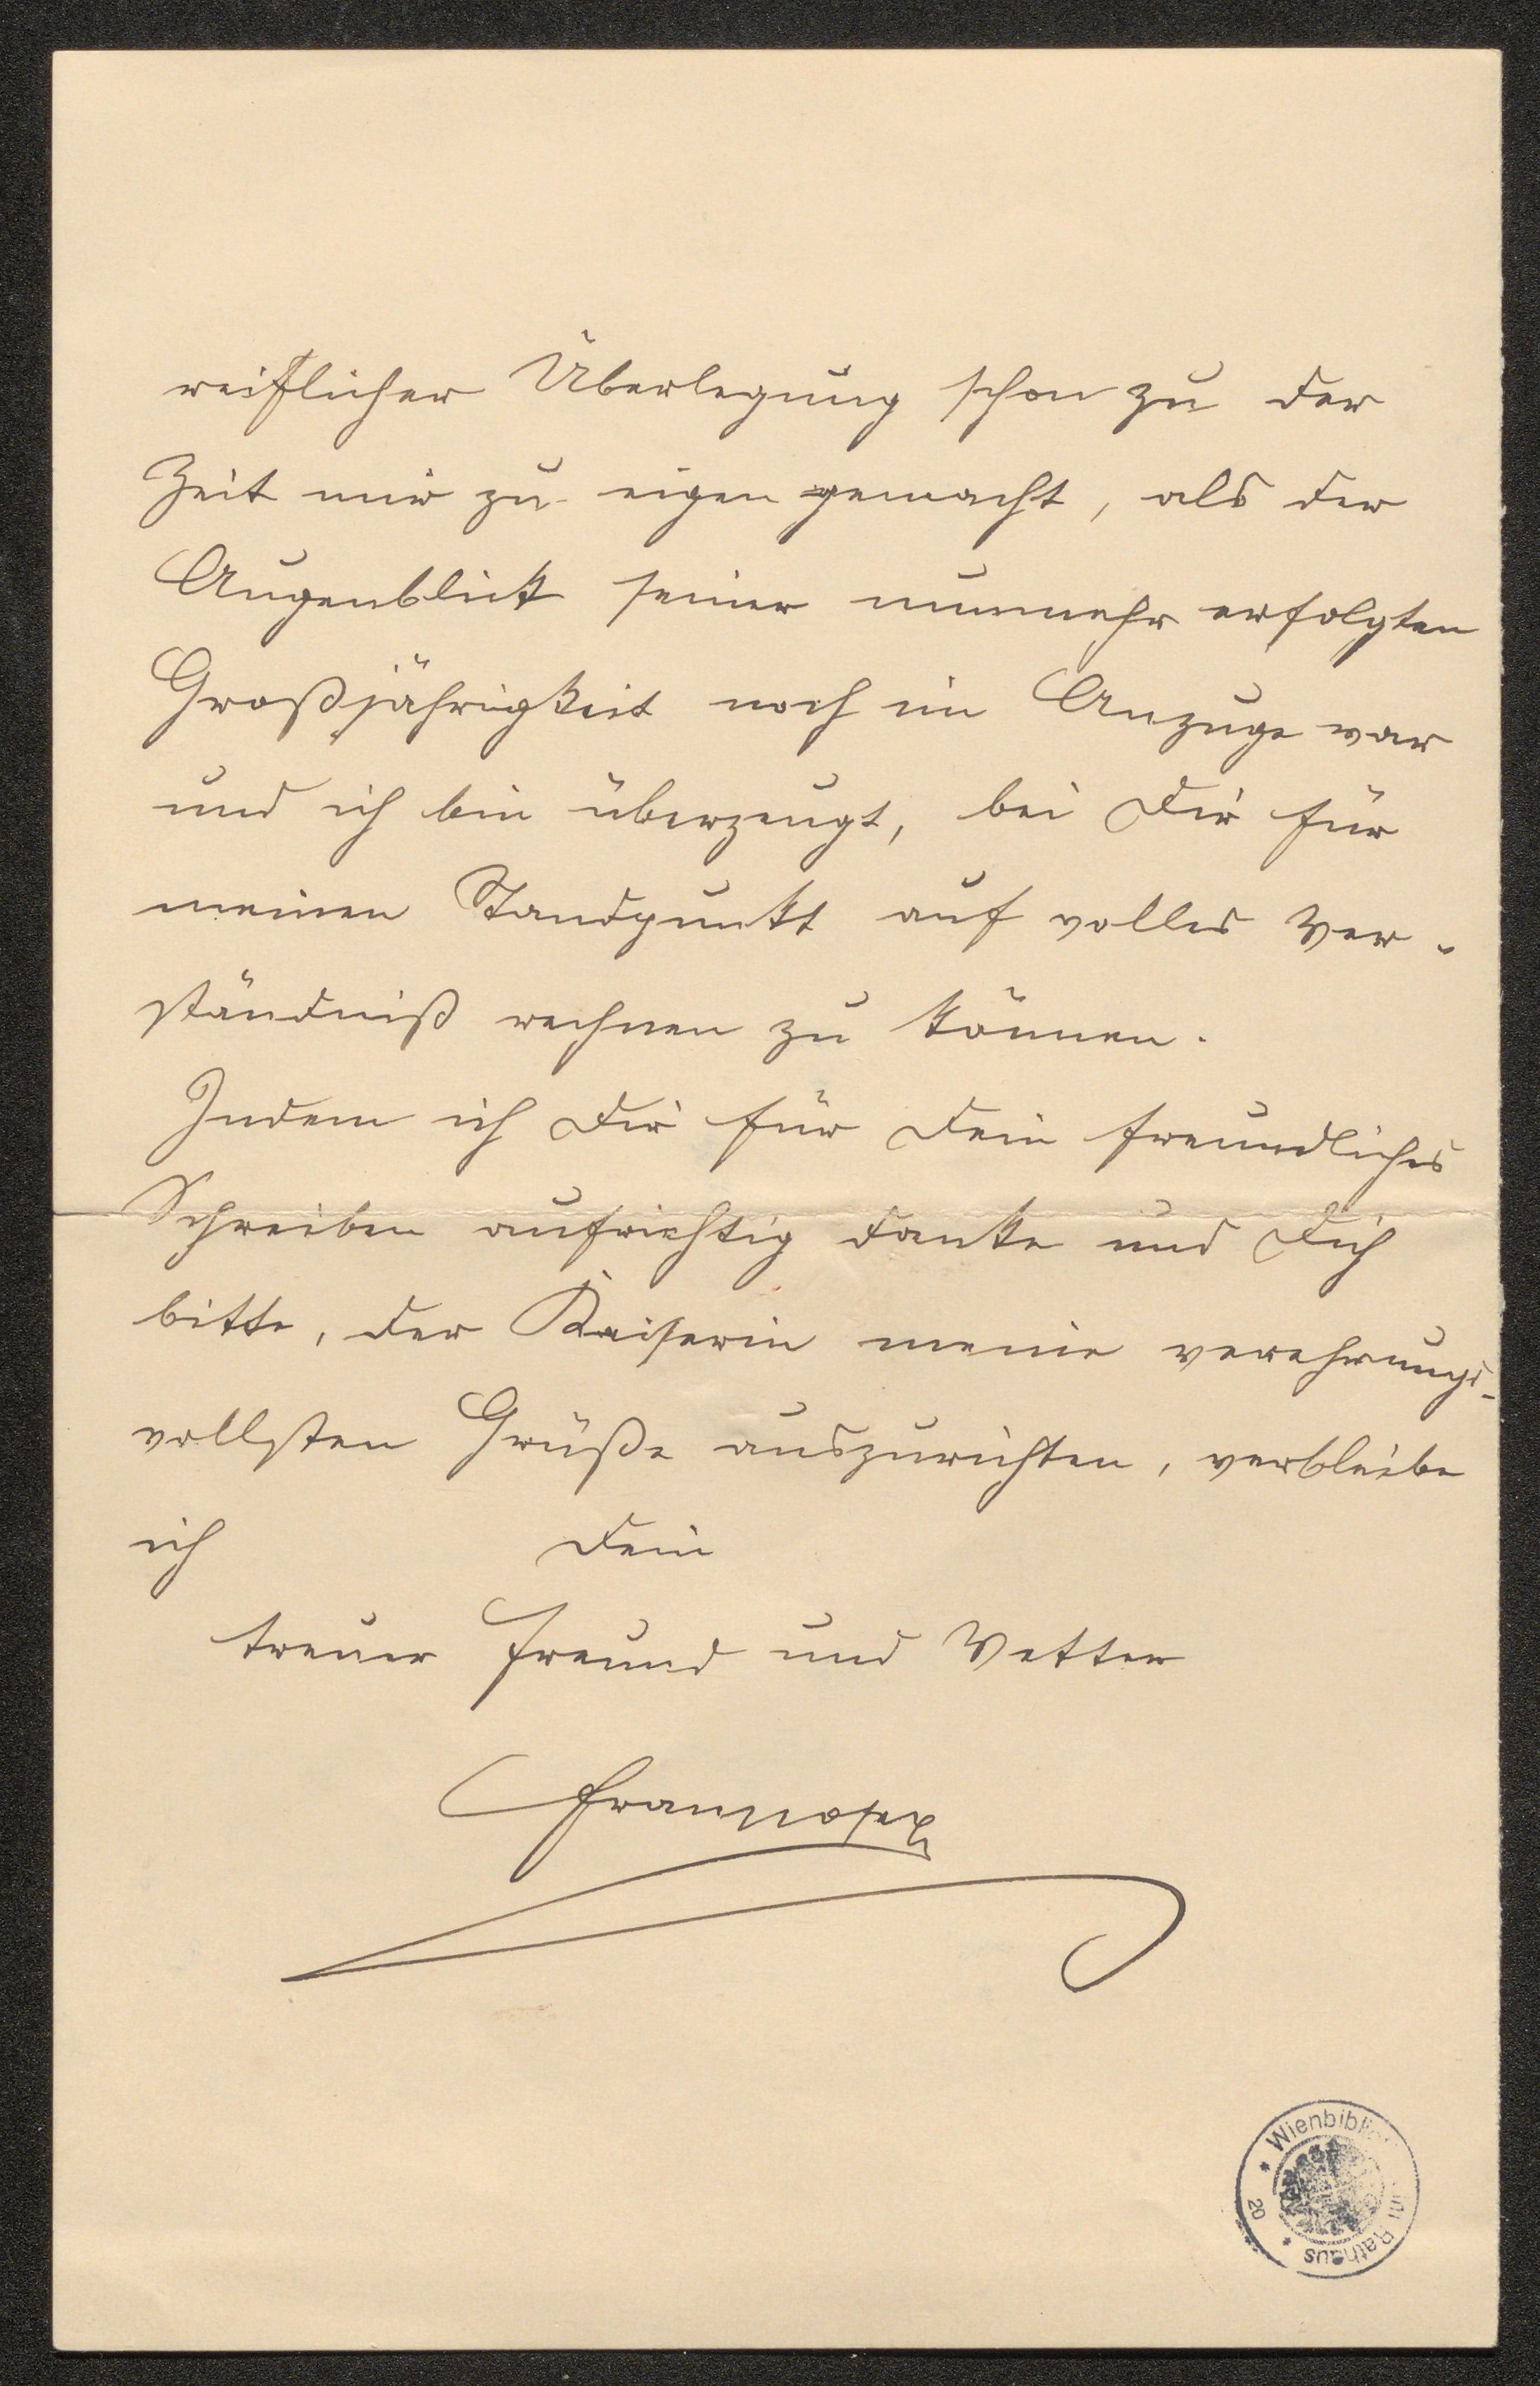 reiflicher Überlegung schon zu der
Zeit mir zu eigen gemacht, als der
Augenblick seiner nunmehr erfolgten
Großjährigkeit noch im Anzuge war
und ich bin überzeugt, bei Dir für
meinen Standpunkt auf volles Ver-
ständniß rechnen zu können.
Indem ich Dir für Dein freundliches
Schreiben aufrichtig danke und Dich
bitte, der Kaiserin meine verehrungs-
vollsten Grüße auszurichten, verbleibe
ich Dein
treuer Freund und Vetter
Franz Joseph
* Wienbibliothek im Rathaus *
20